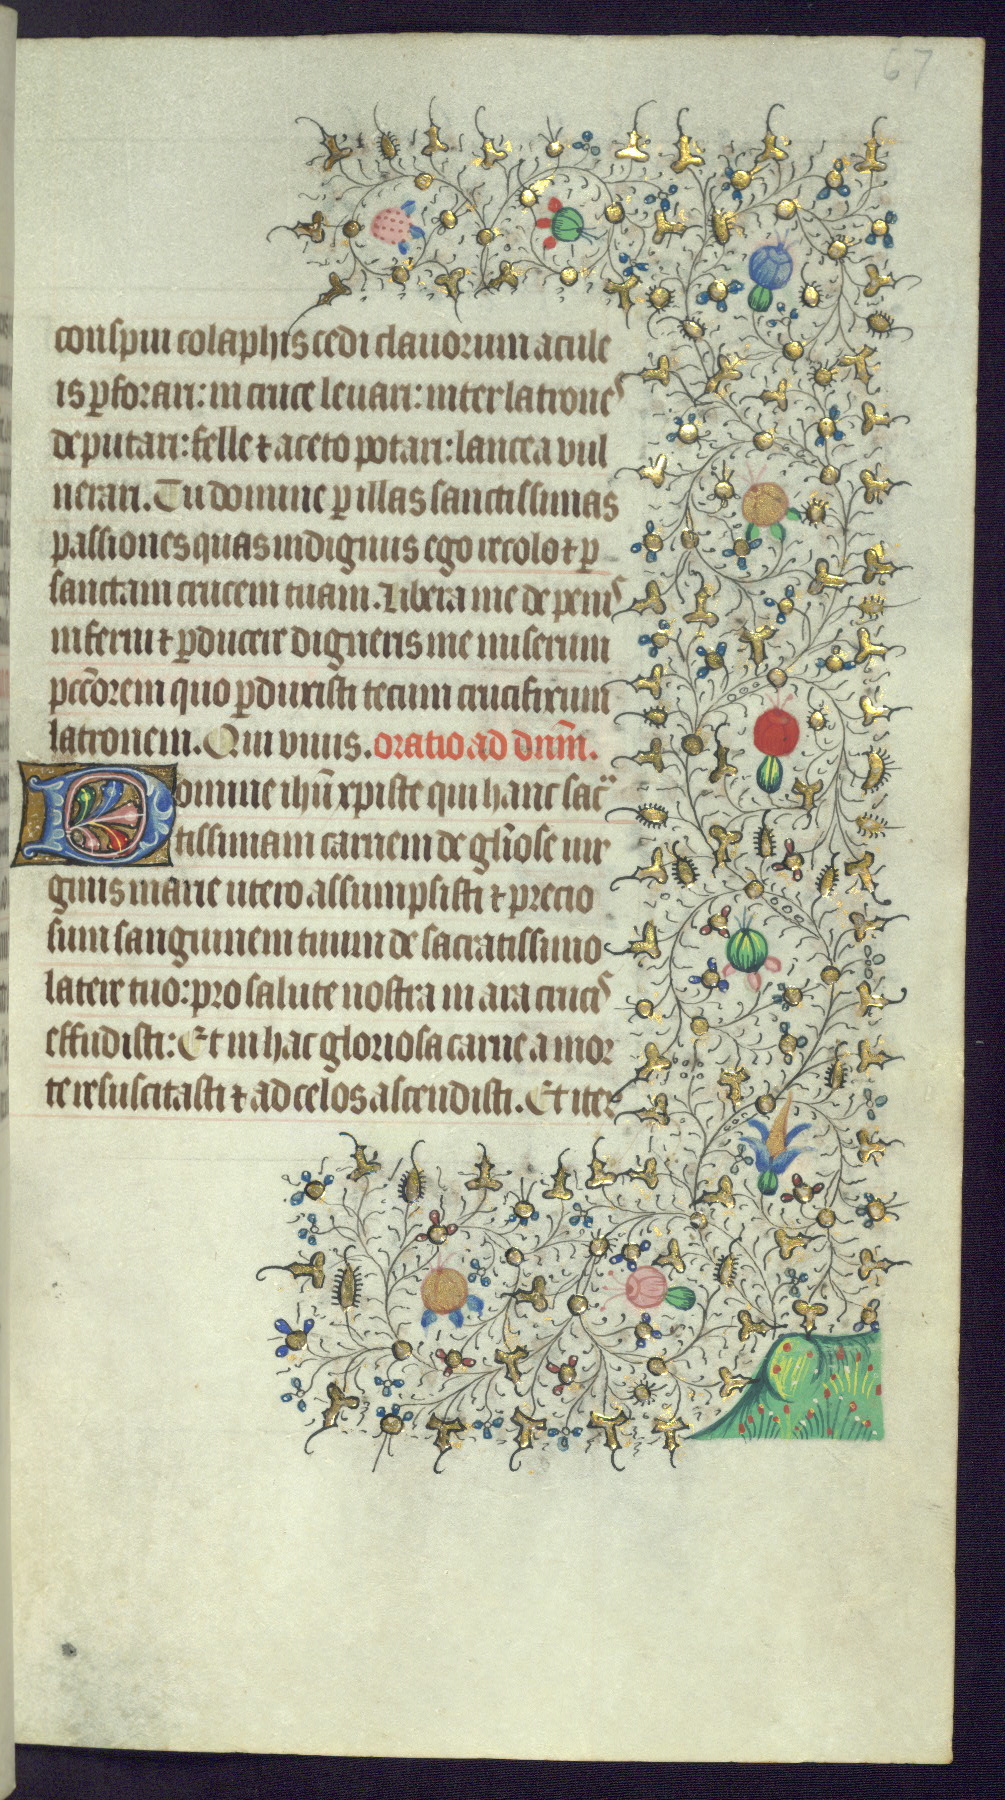 67
conspui colaphis cedi clauorum acule
is ꝑforari: in cruce leuari: inter latrones
deputari: felle ⁊ aceto potari: lancea vul
nerari. Tu domine ꝑ illas sanctissimas
passiones quas indignus ego recolo ⁊ ꝑ
sanctam crucem tuam. Libera me de penis
inferni ⁊ ꝑducere digneris me miserum
pctōrem quo ꝑduxisti tecum crucifixum
latronem. Qui viuis. oratio ad dn̄m.
Domine ihū xpiste qui hanc sac̄
tissimam carnem de gl̄iose uir
ginis marie utero assumpsisti ⁊ precio
sum sanguinem tuum de sacratissimo
latere tuo: pro salute nostra in ara crucis
effudisti: Et in hac gloriosa carne a mor
te resuscitasti ⁊ ad celos ascendisti. Et iter